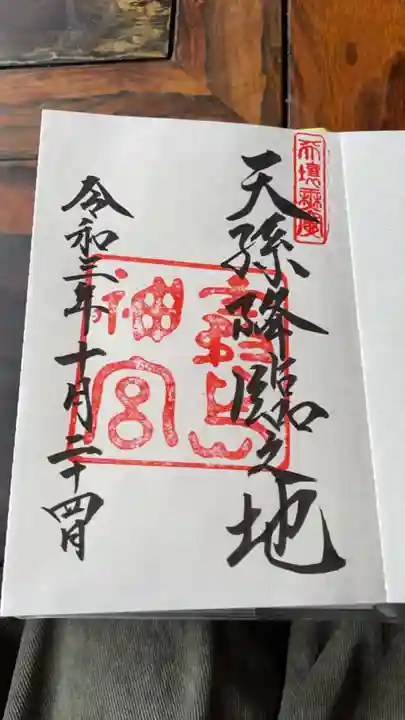 天壌無窮
天孫降臨之地
霧島
神宮
令和三年十月二十四日